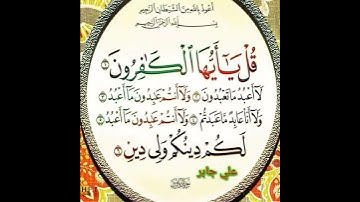 أعوذ بالله من الشيطان الرجيم
بسم الله الرحمن الرحيم
قُلْ يَـٰٓأَيُّهَا ٱلْكَـٰفِرُونَ ١
لَآ أَعْبُدُ مَا تَعْبُدُونَ ٢ وَلَآ أَنتُمْ عَـٰبِدُونَ مَآ أَعْبُدُ ٣
وَلَآ أَنَا۠ عَابِدٌ مَّا عَبَدتُّمْ ٤ وَلَآ أَنتُمْ عَـٰبِدُونَ مَآ أَعْبُدُ ٥
لَكُمْ دِينُكُمْ وَلِىَ دِينِ ٦
علي جابر